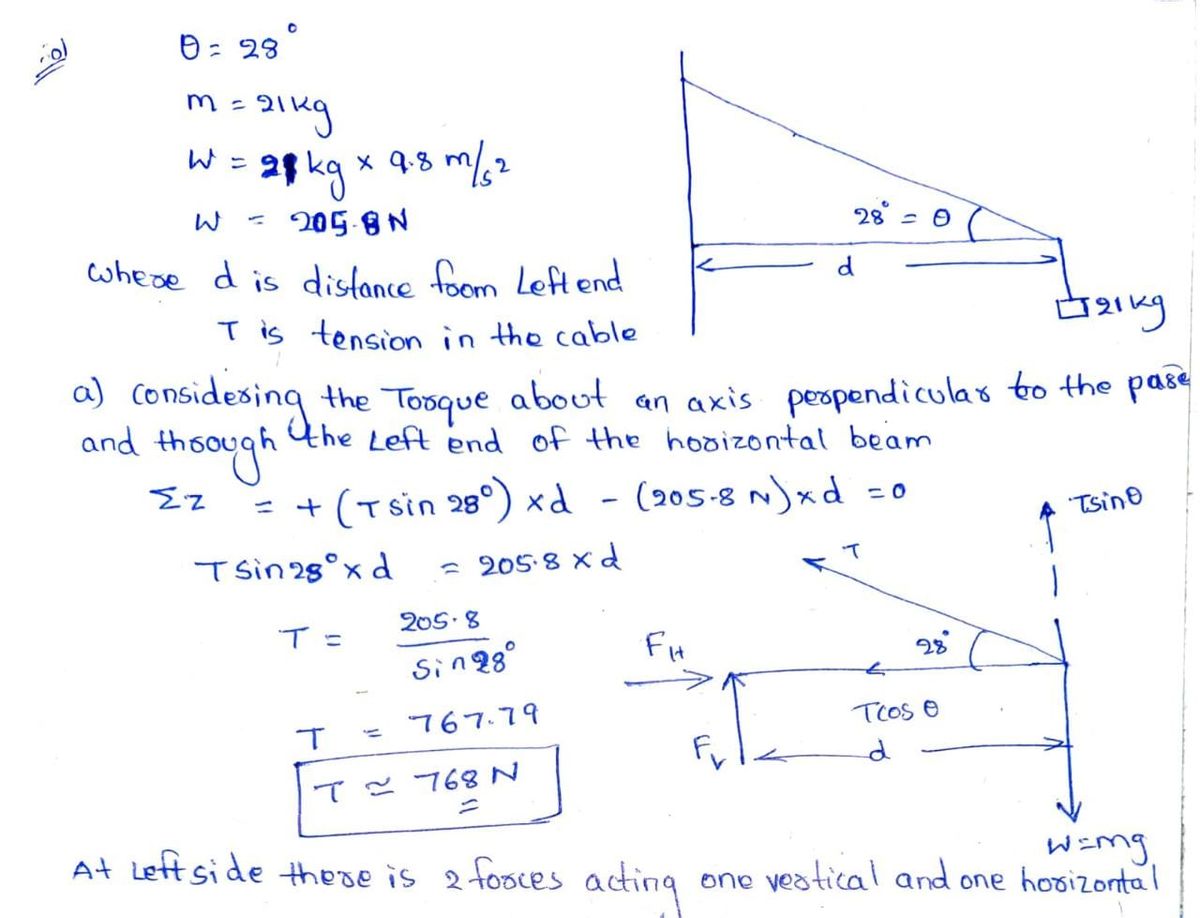 θ = 28°
m = 21 kg
W = 21 kg × 9.8 m/s2
W = 205.8 N
28° = θ
d
21 kg
where d is distance from Left end
T is tension in the cable
a) Considering the Torque about an axis perpendicular to the page
and through the Left end of the horizontal beam
Σ𝜏 = + (T sin 28°) × d - (205.8 N) × d = 0
T sin 28° × d = 205.8 × d
T = 205.8 / Sin 28°
T = 767.79
T ≃ 768 N
Tsinθ
T
28°
FH
Tcos θ
Fv
d
W=mg
At Left side there is 2 forces acting one vertical and one horizontal